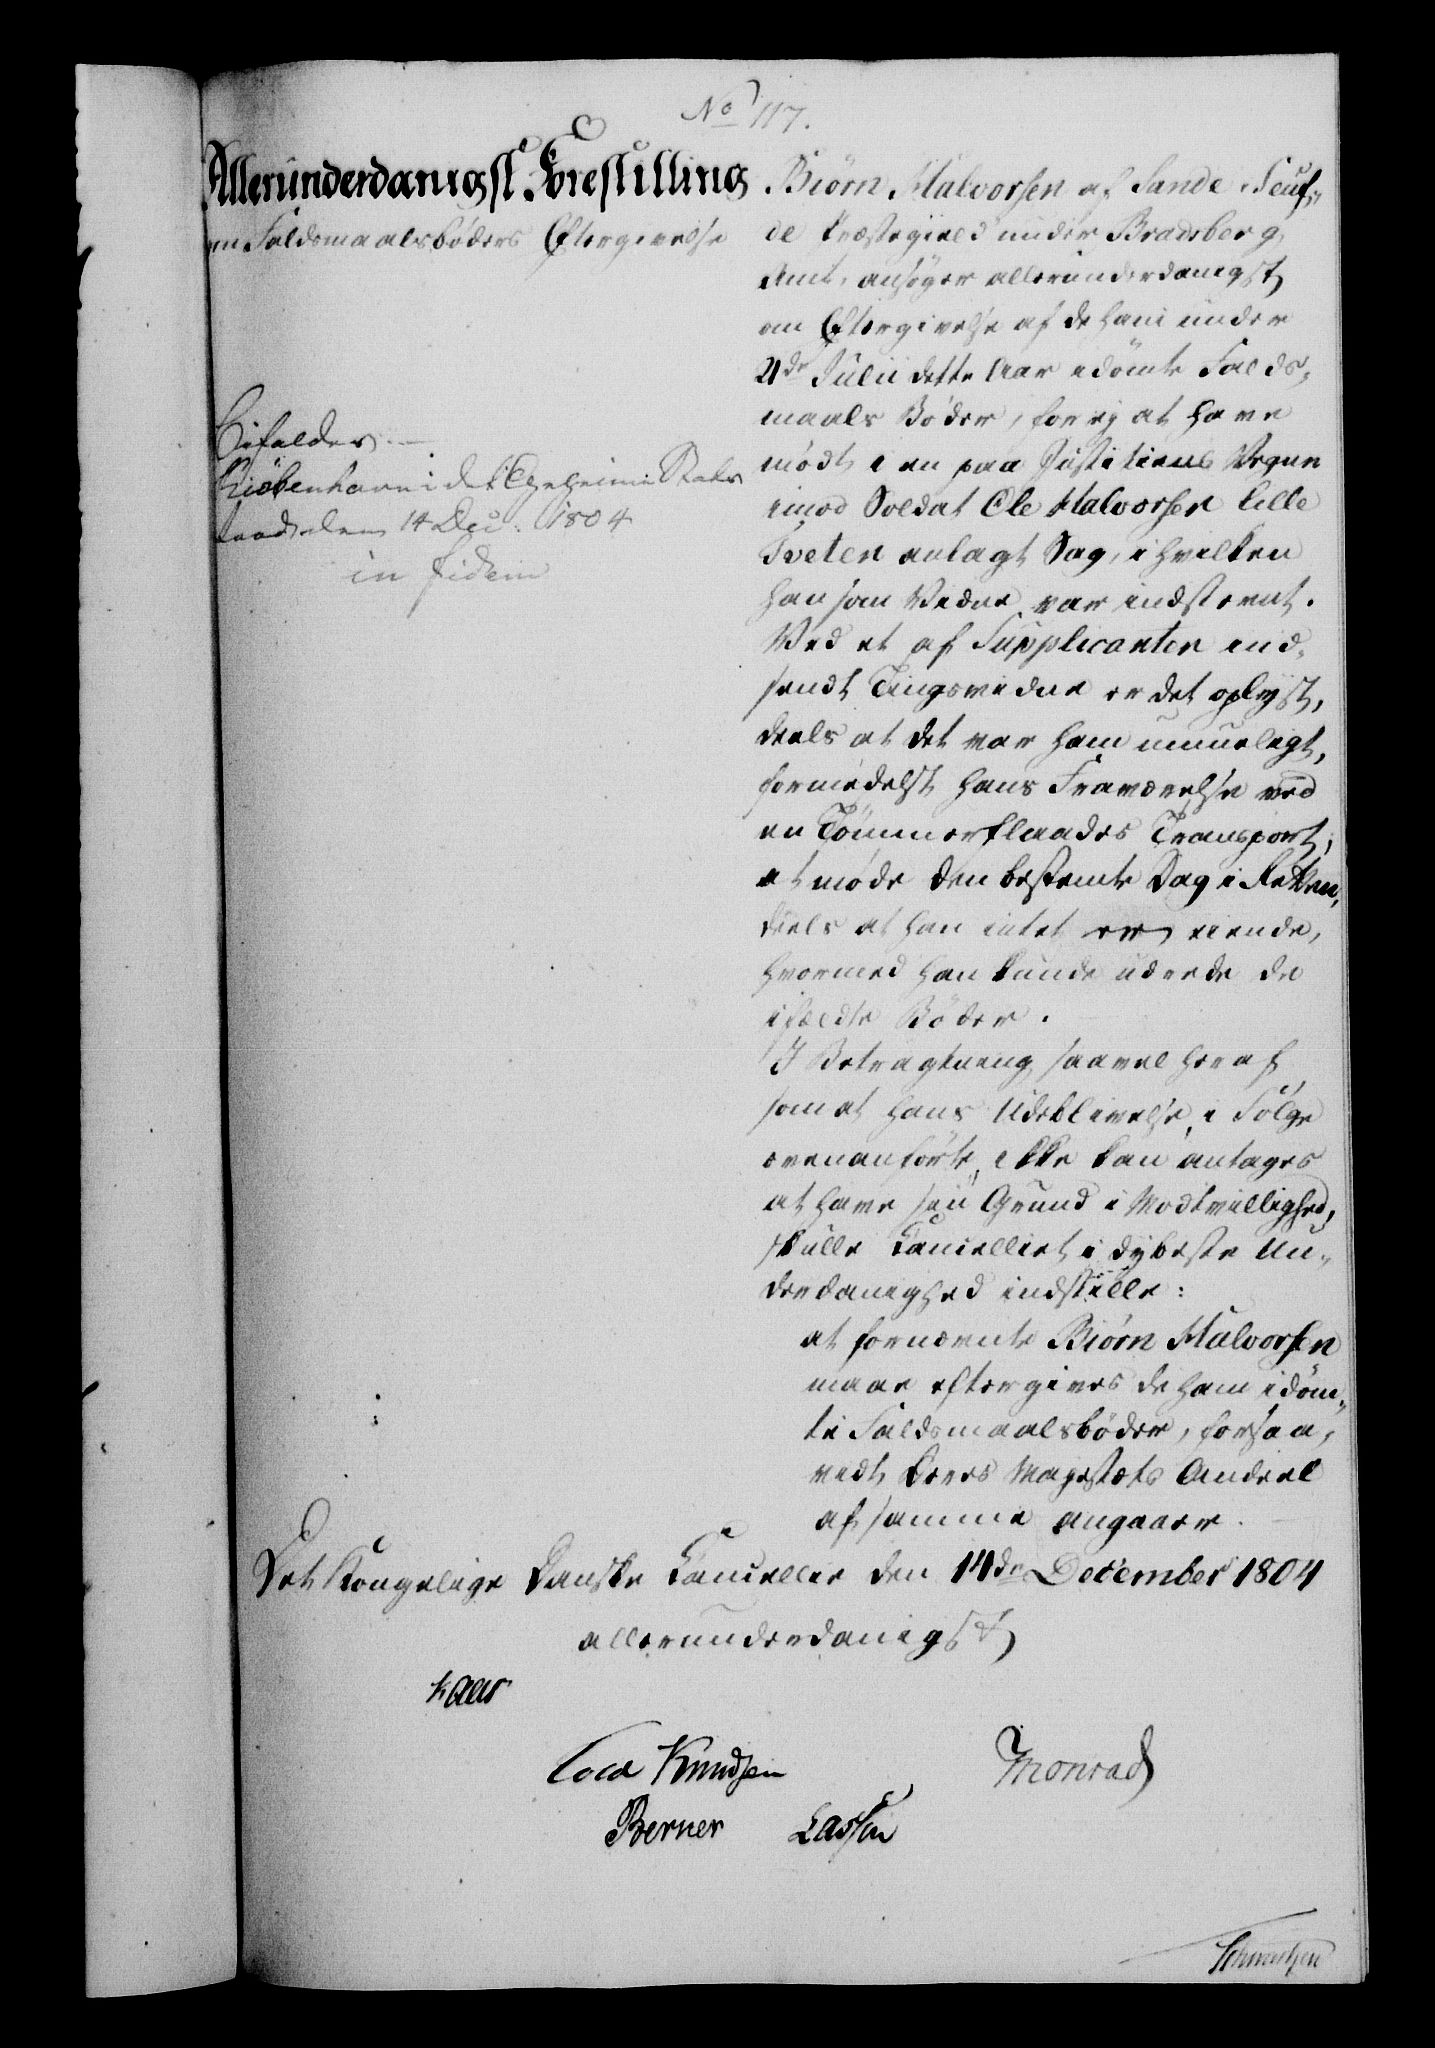 No 117.
Allerunderdanigst Forestilling
om Faldsmaalsbøders Eftergivelse
Bifaldes.
Kiöbenhavn i det Geheime Stats
raad den 14 Dec: 1804
in fidem
Biørn Halvorsen af Sande i Seuf-
de Præstegield under Bradsberg
Amt, ansøger allerunderdanigst
om Eftergivelse af de ham under
4de Julii dette Aar idömte Falds-
maals Bøder, for ej at have
mødt i en paa Justitiens Vegne
imod Soldat Ole Halvorsen lille
Tveten anlagt Sag, i hvilken
han som Vidne var indstevnt.
Ved et af Supplicanten ind-
sendt Tingsvidne er det oplyst,
deels at det var ham umueligt,
formedelst hans Fraværelse ved
en Tömmerflaades Transport,
at møde den bestemte Dag i Retten,
deels at han intet er eiende,
hvormed han kunde udrede de
ifældte Böder.
I Betragtning saavel heraf
som at hans Udeblivelse, i Fölge
ovenanförte, ikke kan antages
at have sin Grund i Modvillighed,
skulle Cancelliet i dybeste Un-
derdanighed indstille:
at fornævnte Biørn Halvorsen
maae eftergives de ham idöm-
te Faldsmaalsbøder, forsaa-
vidt Deres Majestæts Andeel
af samme angaaer.
Det Kongelige Danske Cancellie den 14de December 1804
allerunderdanigst
Kaas
Cold Knudsen Monrad
Berner Lassen